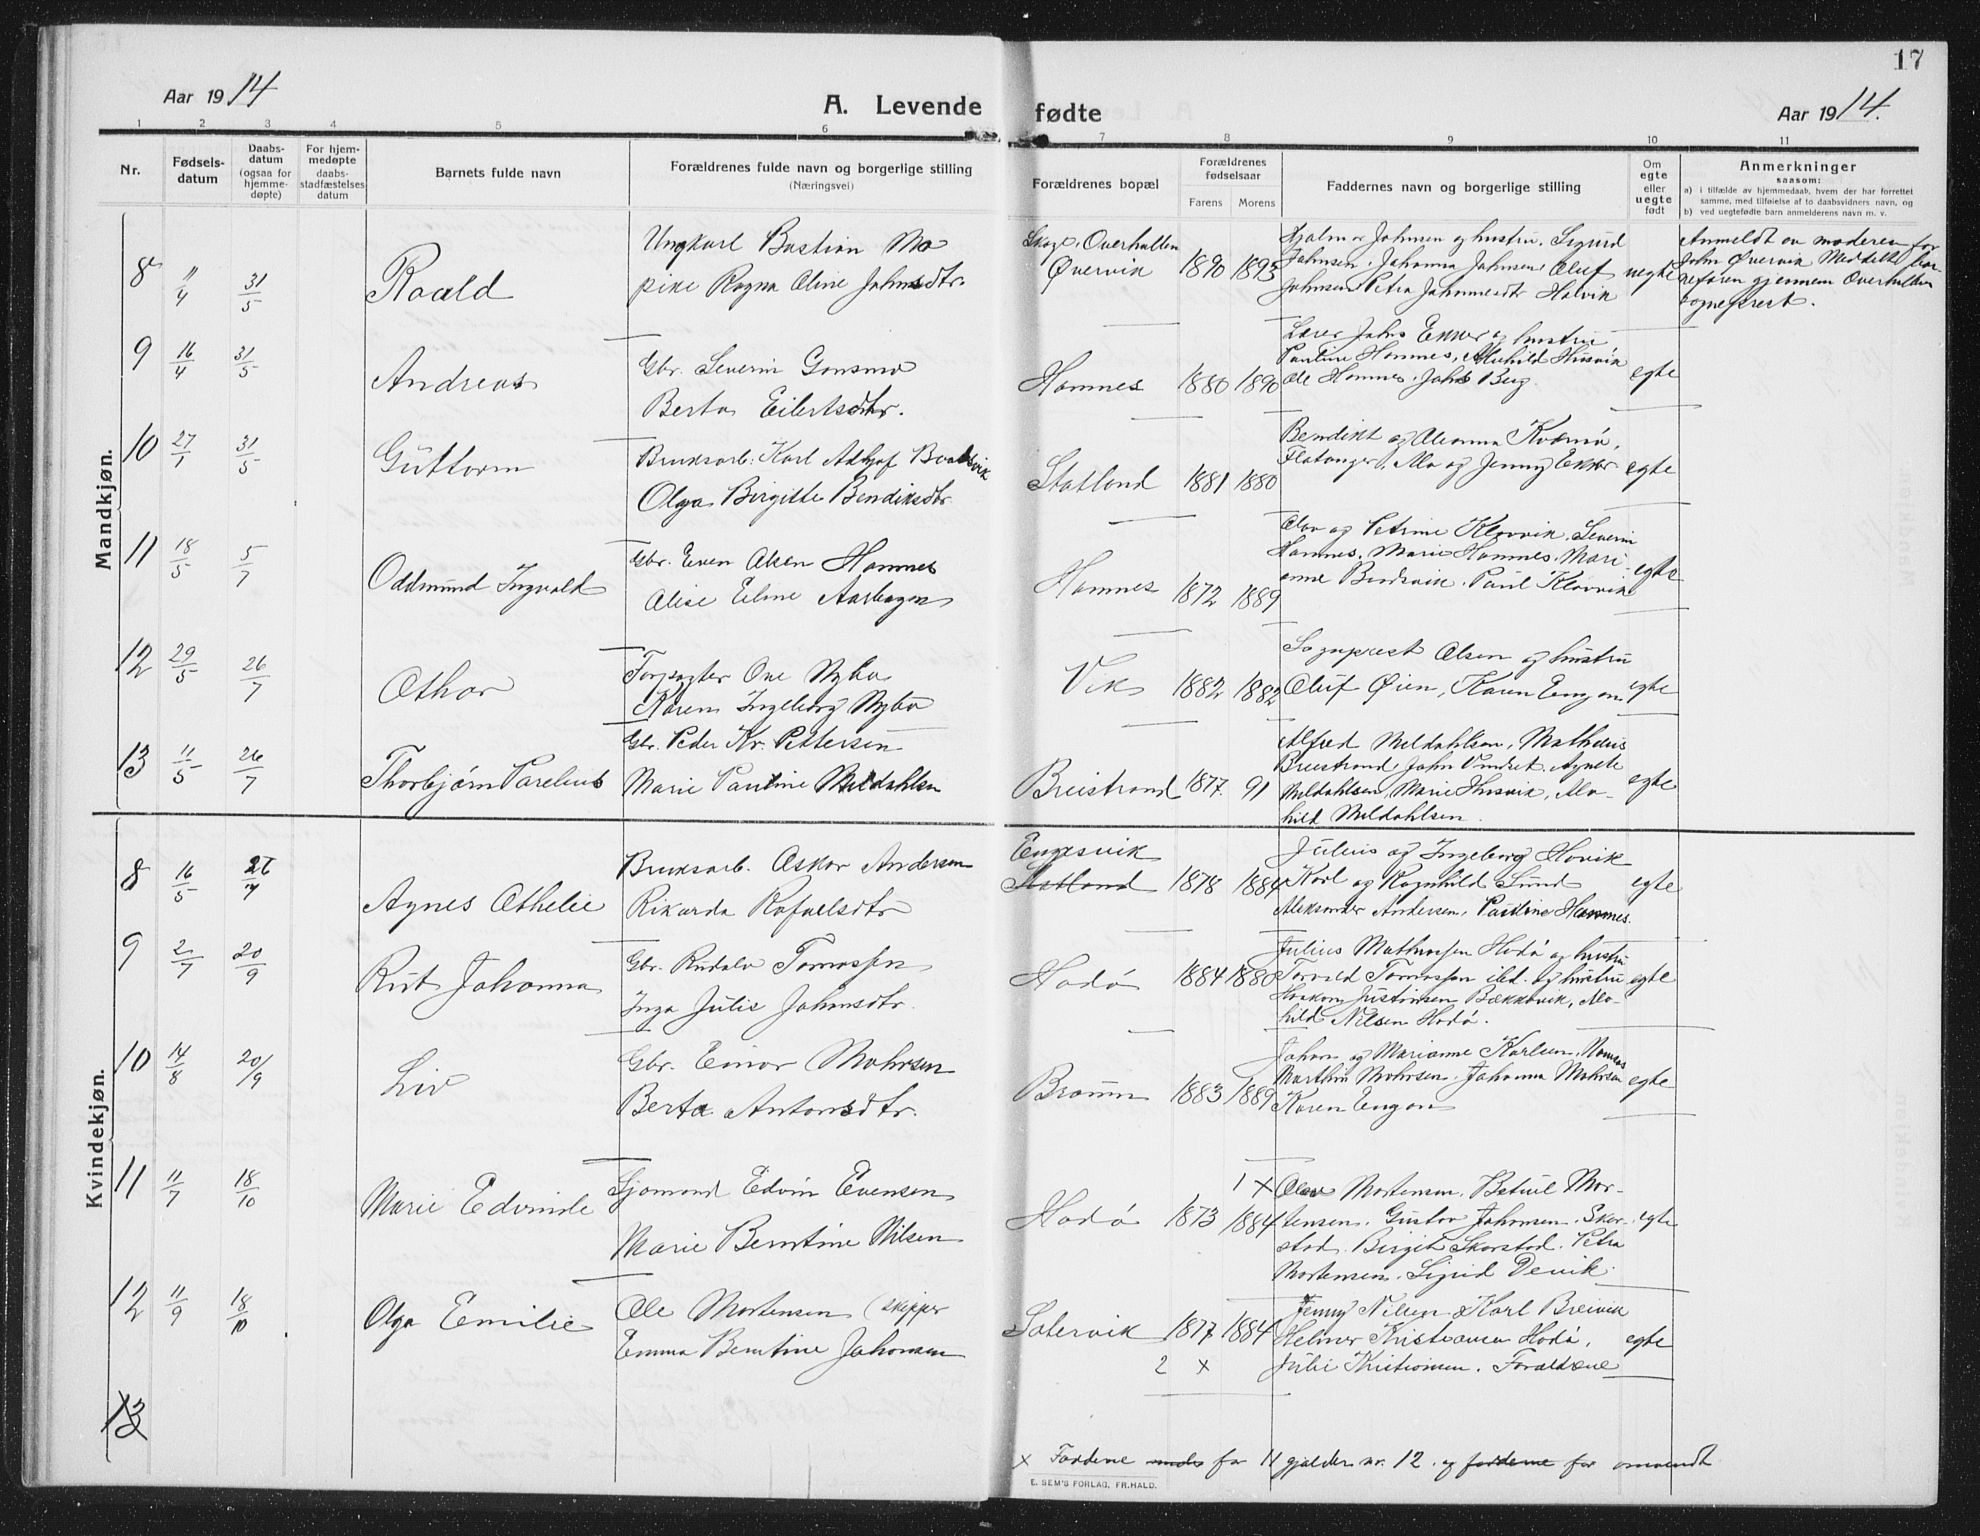 17
Aar 1914
A. Levende fødte
Aar 1914.
1 2 3 4 5 6 7 8 9 10 11
Nr.
Fødsels-
datum
Daabs-
datum
(ogsaa for
hjemme-
døpte)
For hjem-
medøpte
daabs-
stadfæstelses
datum
Barnets fulde navn
Forældrenes fulde navn og borgerlige stilling
(Næringsvei)
Forældrenes bopæl
Forældrenes
fødselsaar
Farens Morens
Faddernes navn og borgerlige stilling
Om
egte
eller
uegte
født
Anmerkninger
saasom:
a) i tilfælde av hjemmedaab, hvem der har forrettet
samme, med tilføielse af to daabsvidners navn, og
b) ved uegtefødte barn anmelderens navn m. v.
Mandkjøn.
8 11/4 31/5 Roald
Ungkarl Bastian Mo
pike Ragna Oline Johnsdtr.
Skage, Overhallen
Øvervik 1890 1893
Hjalmar Johnsen og hustru, Sigurd
Johnsen, Johanna Johnsen, Oluf
Johnsen, Petra Johannesdtr Halvik
uegte
Anmeldt av moderen for
John Øvervik Meddelt bar-
nefaren gjennem Overhallen
sogneprest.
9 16/4 31/5 Andreas
Gbr. Severin Gansmo
Berta Eilertsdtr.
Hamnes 1880 1890
Lærer Johs Ekker og hustru
Pauline Hamnes, Alvhild Husvik
Ole Hamnes. Johs Berg.
egte
10 27/1 31/5 Guttorm
Bruksarb. Karl Adtjof Bvik
Olga Birgitte Bendiksdtr
Statland 1881 1880
Bendikt og Oleanna Kværnø,
Flatanger, Mo og Jenny Ekker
egte
11 18/5 5/7 Oddmund Ingvald
Gbr. Even Olsen Hamnes
Alise Eline Aarhagen
Hamnes 1872 1889
Olav og Petrine Kløvvik, Severin
Hamnes, Marie Hamnes, Mari-
anne Bindsvik. Paul Kløvvik
egte
12 29/5 26/7 Othar
Forpagter Ove Nybo
Karen Ingeborg Nybo
Vik 1882 1882
Sogneprest Olsen og hustru
Oluf Øien, Karen Engan
egte
13 11/5 26/7 Thorbjørn Parelius
Gbr. Peder Kr. Pettersen
Marie Pauline Meldahlsen
Breistrand 1877. 91
Alfred Meldahlsen, Matheus
Breistrand, John Vindret, Agnete
Meldahlsen, Marie Husvik, Alv-
hild Meldahlsen.
egte
Kvindekjøn.
8 16/5 26/7 Agnes Othelie
Bruksarb. Oskar Andersen
Rikarda Rafaelsdtr
Engesvik
Statland 1878 1884
Julius og Ingeborg Hovik
Karl og Ragnhild Sund
Aleksander Andersen, Pauline Hamnes.
egte
9 2/7 20/9 Rut Johanna
Gbr. Rudolv Tomassen
Inga Julie Johnsdtr.
Hodø 1884 1880
Julius Mathiassen Hodø og hustru
Torvald Tomassen ibd. og hustru
Haakon Justinsen Bækkavik, Alv-
hild Nilsen Hodø.
egte
10 14/8 20/9 Liv
Gbr. Einar Mohrsen
Berta Antonsdtr.
Braunn 1883 1889
Johan og Marianne Karlsen, Namsos
Marthin Mohrsen. Johanna Mohrsen
Karen Engan
egte
11 11/7 18/10 Marie Edvinde
Sjømand Edvin Evensen
Marie Berntine Nilsen
Hodø 1873 1884
1 x Olav Mortensen, Betuel Mor-
tensen. Gustav Johansen. Skor-
stad. Birgit Skorstad. Petra
Mortensen. Sigrid Devik.
egte
12 11/9 18/10 Olga Emilie
Ole Mortensen (skipper
Emma Berntine Johansen
Satervik 1877 1884
2 x
Jenny Nilsen & Karl Breivik
Helmer Kristiansen Hodø,
Julie Kristiansen. Forældrene
egte
13
x Faddene for 11 gjælder nr. 12. og faddene for omvendt
E. SEM'S FORLAG, FR.HALD.